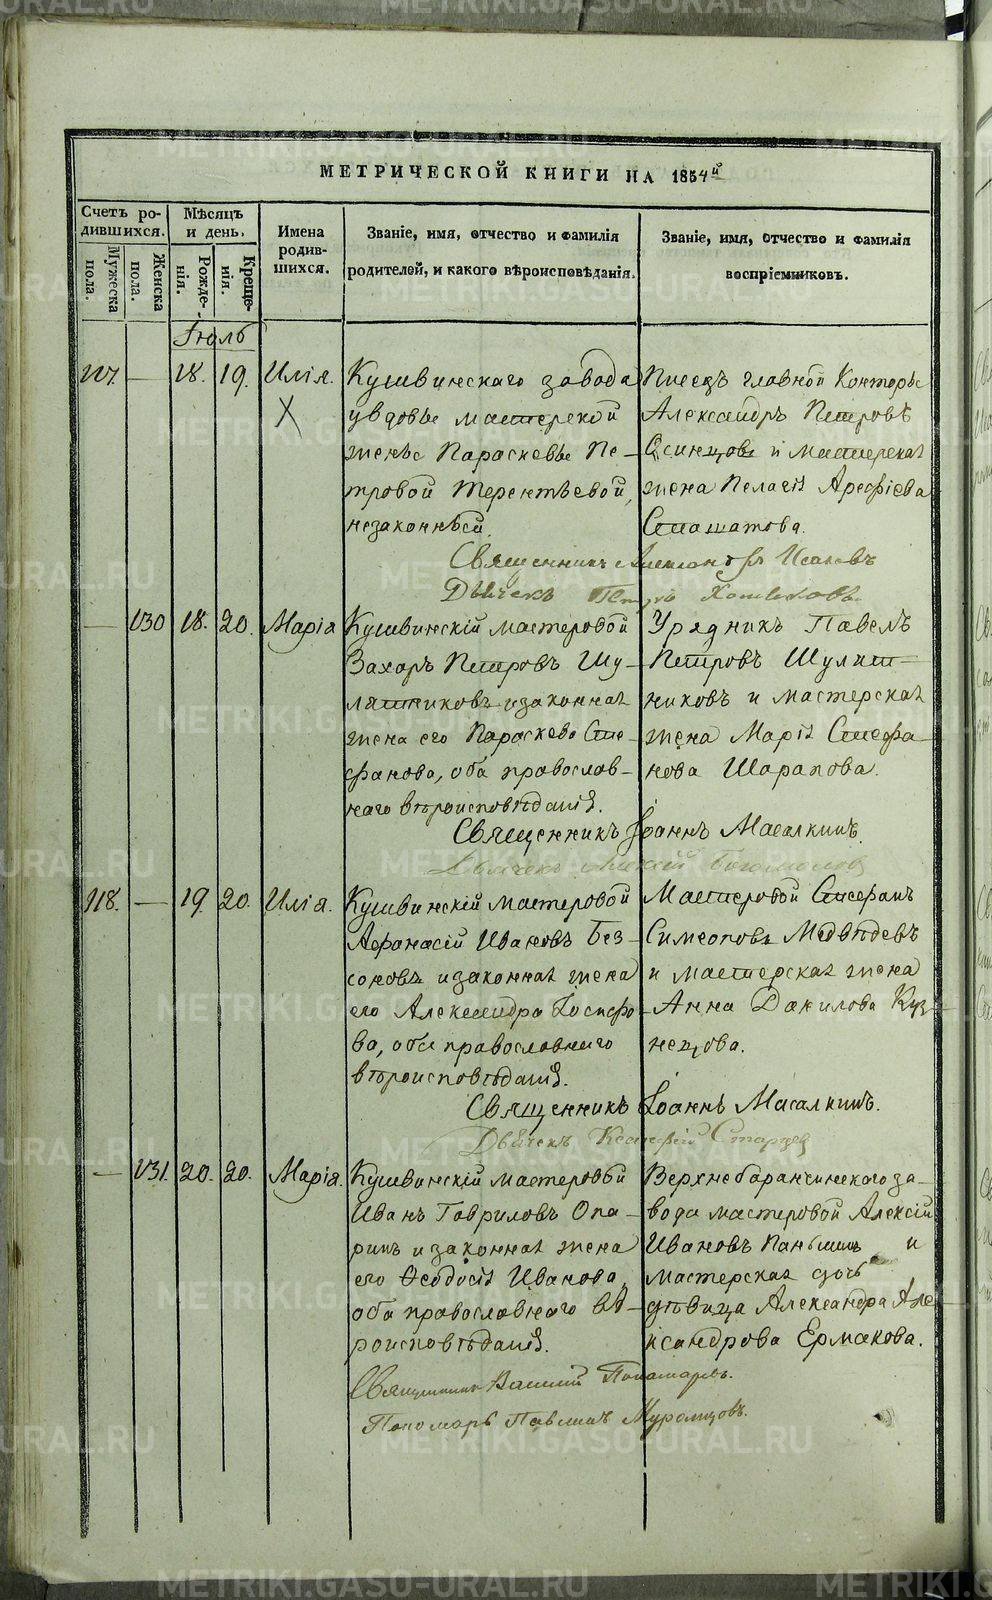 МЕТРИЧЕСКОЙ КНИГИ НА 1854й
Счетъ ро-
дившихся.
Мужеска
пола.
Женска
пола.
Мѣсяцъ
и день.
Рожде-
нія.
Креще-
нія.
Имена
родив-
шихся.
Званіе, имя, отчество и фамилія
родителей, и какого вѣроисповѣданія.
Званіе, имя, отчество и фамилія
воспріемниковъ.
Іюль
117. — 18. 19. Илія.
Х
Кушвинскаго завода
у вдовы мастерской
жены Параскевы Пе-
тровой Терентьевой,
незаконный.
Писецъ главной Конторы
Александръ Петровъ
Осинцовъ и мастерская
жена Пелагія Арефіева
Священникъ Александръ Исаковъ
Дьячекъ Петръ
— 130 18. 20. Марія
Кушвинскій мастеровой
Захаръ Петровъ Шу-
лятниковъ и законная
жена его Параскева Сте-
фанова, оба православ-
наго вѣроисповѣданія.
Урядникъ Павелъ
Петровъ Шулят-
никовъ и мастерская
жена Марія Стефа-
нова Шарапова.
Священникъ Іоаннъ Масалкинъ.
Дьячекъ Алексій Богомолов
118. — 19. 20. Илія.
Кушвинскій мастеровой
Афанасій Ивановъ Без-
соновъ и законная жена
его Александра Іосифо-
ва, оба православнаго
вѣроисповѣданія.
Мастеровой Стефанъ
Симеоновъ Медвѣдевъ
и мастерская жена
Анна Данилова Куз-
нецова.
Священникъ Іоаннъ Масалкинъ.
Дьячекъ Ксанфій Старцев
— 131. 20. 20. Марія.
Кушвинскій мастеровой
Иванъ Гавриловъ Опа-
ринъ и законная жена
его Ѳеодосія Иванова,
оба православнаго вѣ-
роисповѣданія.
Верхнебаранчинскаго за-
вода мастеровой Алексій
Ивановъ Паньшинъ и
мастерская дочь
дѣвица Александра Але-
ксандрова Ермакова.
Священникъ Василій Пономаревъ.
Пономарь Павлинъ Муромцовъ.
METRIKI.GASO-URAL.RU